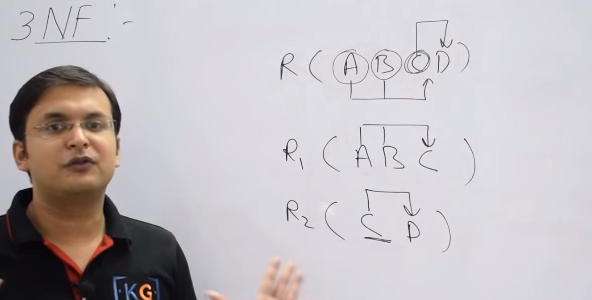 3 NF :-
R ( A B C D )
R₁ ( A B C )
R₂ ( C D )
KG